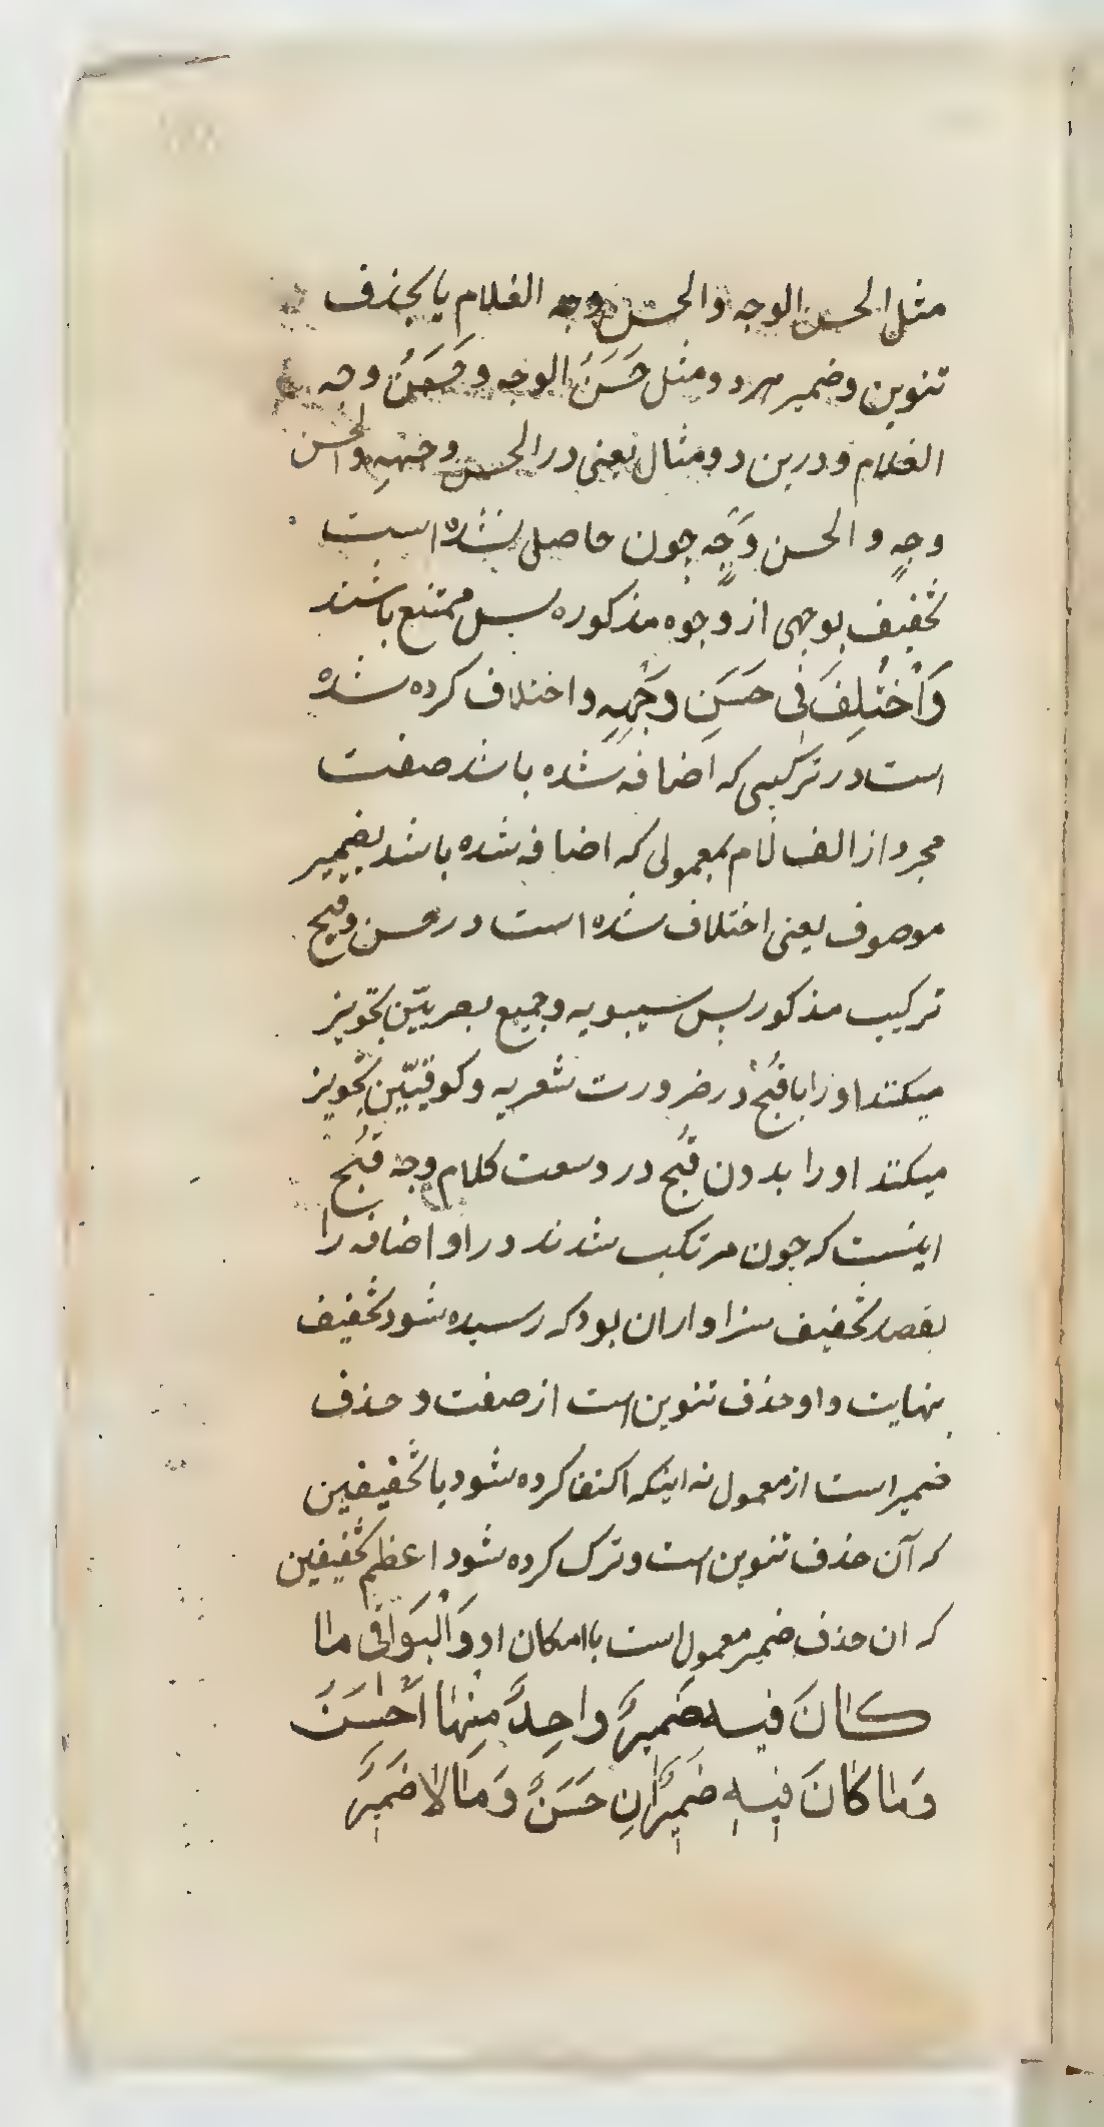 مثل الحسن الوجه والحسن وجه الغلام یا بحذف
تنوین و ضمیر هر دو مثل حَسَنُ الوجه و حَسَنُ وجه
الغلام و درین دو مثال یعنی در الحسن وجهِهِ والحسن
وجهٍ و الحسن وَجْهٍ چون حاصل نشده است
تخفیف بوجهی از وجوه مذکوره پس ممتنع باشند
وَاُخْتُلِفَ فی حَسَنِ وَجْهِهِ و اختلاف کرده شده
است در ترکیبی که اضافه شده باشد صفت
مجرد از الف لام بمعمولی که اضافه شده باشد بضمیر
موصوف یعنی اختلاف شده است در حسن و قبح
ترکیب مذکور پس سیبویه و جمیع بصریّین تجویز
میکنند او را با قُبْح در ضرورت شعریه و کوفیّین تجویز
میکنند او را بدون قُبح در وسعت کلام وجه قُبح
اینست که چون مرتکب شدند در او اضافه را
بقصد تخفیف سزاوار ان بود که رسیده شود تخفیف
بنهایت و او حذف تنوین است از صفت و حذف
ضمیر است از معمول نه اینکه اکتفا کرده شود باخفیفین
که آن حذف تنوین است و ترک کرده شود اعظم تخفیفین
که ان حذف ضمیر معمول است با امکان او وَالْبَوَاقی ما
کانَ فیه ضَمیرٌ واحِدٌ مِنْها اَحْسَنُ
وَما کانَ فیهِ ضَمیرٰانِ حَسَنٌ وَمالا ضَمیرَ